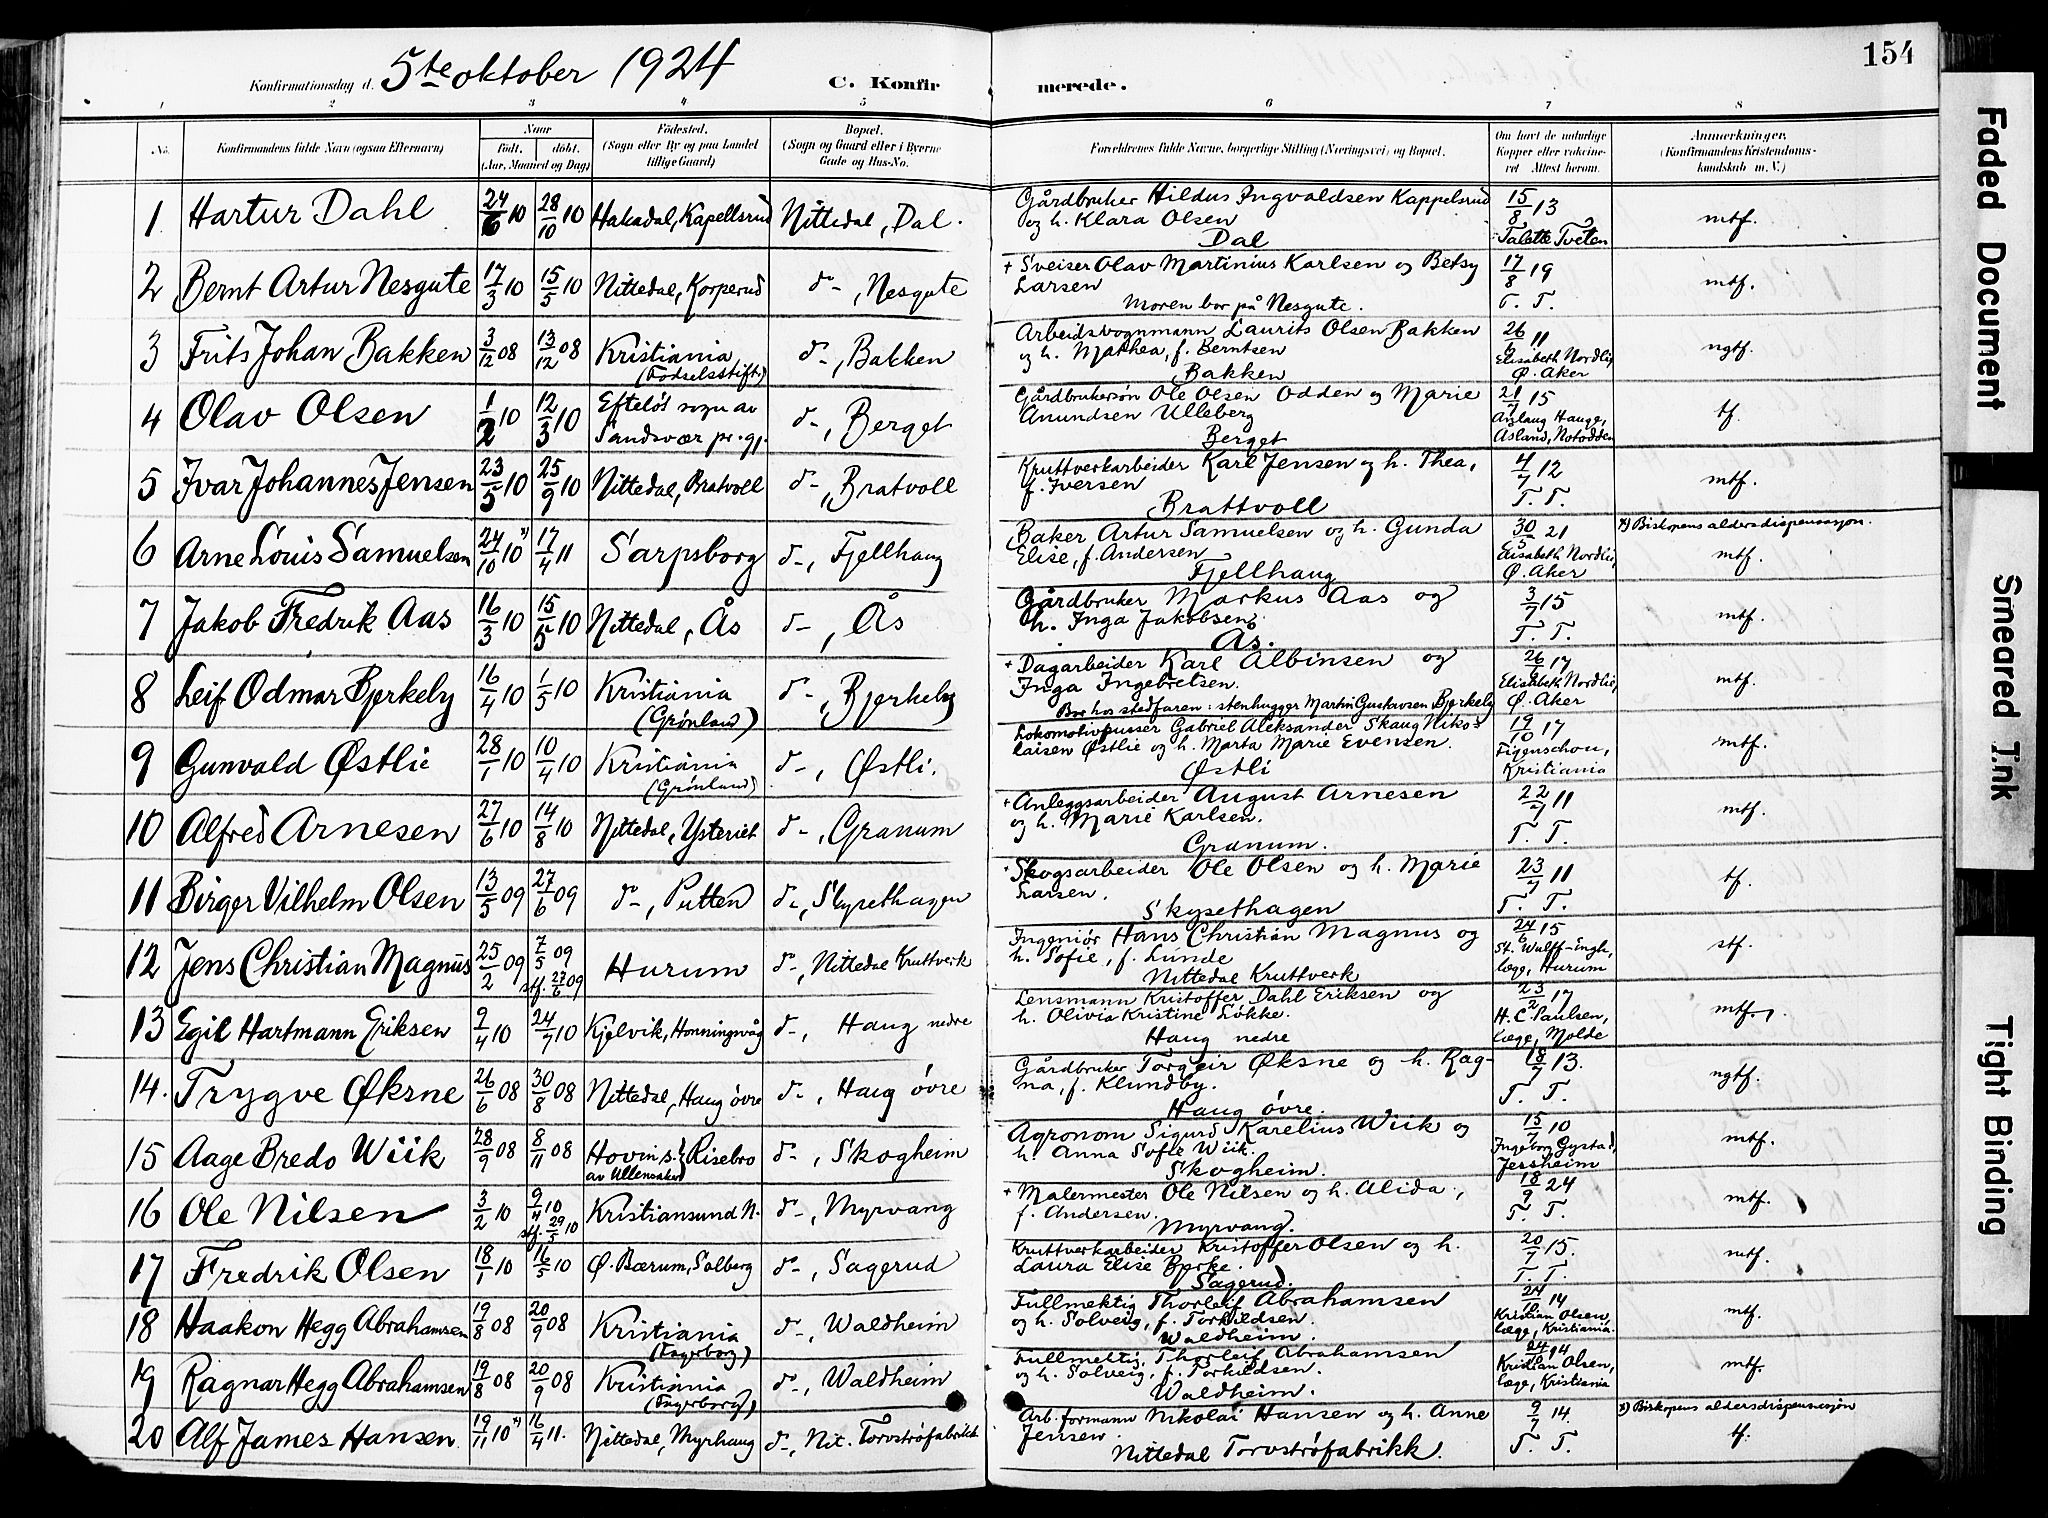 154
Konfirmationsdag d. 5te oktober 1924 C. Konfirmerede.
1 2 3 4 5 6 7 8
No. Konfirmandens fulde Navn (ogsaa Efternavn) Naar født. døbt. (Aar, Maaned og Dag) Fødested. (Sogn eller By og paa Landet tillige Gaard) Bopæl. (Sogn og Gaard eller i Byerne Gade og Hus-No.) Forældrenes fulde Navne, borgerlige Stilling (Næringsvei) og Bopæl. Om havt de naturlige Kopper eller vakcineret Attest herom. Anmærkninger. (Konfirmandens Kristendomskundskab m. V.)
1 Hartur Dahl 24/6 10 28/10 10 Hakadal, Kapellsrud Nittedal, Dal. Gårdbruker Hildus Ingvaldsen Kappelsrud 15/8 13 mtf.
og h. Klara Olsen
Dal Talette Tveten
2 Bernt Artur Nesgute 17/3 10 15/5 10 Nittedal, Korperud d-, Nesgute + Sveiser Olav Martinius Karlsen og Betsy 17/8 19 mtf.
Larsen
Moren bor på Nesgute. T. T.
3 Frits Johan Bakken 3/12 08 13/12 08 Kristiania d-, Bakken Arbeidsvognmann Laurits Olsen Bakken 26/6 11 ngtf.
(Fødselsstift.) og h. Mathea, f. Berntsen Elisabeth Nordlie,
Bakken Ø. Aker
4 Olav Olsen 1/2 10 12/3 10 Efteløt sogn av d-, Berget Gårdbrukersøn Ole Olsen Odden og Marie 21/7 15 tf.
Sandsvær pr.gj. Anundsen Ulleberg Aslaug Hauge,
Berget Åsland, Notodden
5 Ivar Johannes Jensen 23/5 10 25/9 10 Nittedal, Bratvoll d-, Bratvoll Kruttverkarbeider Karl Jensen og h. Thea, 4/7 12 mtf.
f. Iversen
Brattvoll T. T.
6 Arne Louis Samuelsen 24/10 10 x) 17/4 11 Sarpsborg d-, Fjellhaug Baker Artur Samuelsen og h. Gunda 30/5 21 x) Biskopens aldersdispensasjon.
Elise, f. Andersen Elisabeth Nordlie, mtf.
Fjellhaug Ø. Aker
7 Jakob Fredrik Aas 16/3 10 15/5 10 Nittedal, Ås d-, Ås Gårdbruker Markus Aas og 3/7 15 mtf.
h. Inga Jakobsen
Ås. T. T.
8 Leif Odmar Bjerkely 16/4 10 1/5 10 Kristiania d-, Bjerkely + Dagarbeider Karl Albinsen og 26/6 17 mtf.
(Grønland) Inga Ingebretsen. Elisabeth Nordlie,
Bor hos stedfaren: stenhugger Martin Gustavsen Bjerkely Ø. Aker
9 Gunvald Østlie 28/1 10 10/4 10 Kristiania d-, Østli. Lokomotivpusser Gabriel Aleksander Skaug Niko- 19/10 17 mtf.
(Grønland) laisen Østlie og h. Marta Marie Evensen. Figenschou,
Østli Kristiania
10 Alfred Arnesen 27/6 10 14/8 10 Nittedal, Ysteriet d-, Granum + Anleggsarbeider August Arnesen 22/7 11 mtf.
og h. Marie Karlsen.
Granum. T. T.
11 Birger Vilhelm Olsen 13/5 09 27/6 09 d-, Putten d-, Skysethagen + Skogsarbeider Ole Olsen og h. Marie 23/7 11 tf.
Larsen.
Skysethagen T. T.
12 Jens Christian Magnus 25/2 09 7/5 09 Hurum d-, Nittedal Kruttverk Ingeniør Hans Christian Magnus og 24/6 15 stf.
stf. 27/6 09 h. Sofie, f. Lunde St. Wulff-Engh,
Nittedal Kruttverk læge, Hurum
13 Egil Hartmann Eriksen 9/4 10 24/7 10 Kjelvik, Honningsvåg d-, Haug nedre Lensmann Kristoffer Dahl Eriksen og 23/2 17 mtf.
h. Olivia Kristine Løkke. H. C. Paulsen,
Haug nedre læge, Molde
14. Trygve Øksne 26/6 08 30/8 08 Nittedal, Haug øvre d-, Haug øvre Gårdbruker Torgeir Øksne og h. Rag- 18/7 13. ngtf.
na, f. Klundby.
Haug øvre. T. T.
15 Aage Bredo Wiik 28/9 08 8/11 08 Hovin s. Risebro d-, Skogheim Agronom Sigurd Karelius Wiik og 15/7 10 mtf.
av Ullensaker h. Anna Sofie Wiik. Ingeborg Gystad,
Skogheim. Jessheim
16 Ole Nilsen 3/2 10 9/4 10 Kristiansund N. d-, Myrvang + Malermester Ole Nilsen og h. Alida, 18/9 24 mtf.
stf. 29/5 10 f. Andersen.
Myrvang. T. T.
17 Fredrik Olsen 18/1 10 16/5 10 Ø. Bærum, Solberg d-, Sagerud Kruttverkarbeider Kristoffer Olsen og h. 20/7 15. mtf.
Laura Elise Bjerke.
Sagerud. T. T.
18 Haakon Hegg Abrahamsen 19/8 08 20/9 08 Kristiania d-, Waldheim Fullmektig Thorleif Abrahamsen 24/6 14 mtf.
(Fagerborg) og h. Solveig, f. Torkildsen. Kristian Olsen,
Waldheim. læge, Kristiania.
19 Ragnar Hegg Abrahamsen 19/8 08 20/9 08 Kristiania d-, Waldheim Fullmektig Thorleif Abrahamsen 24/6 14 mtf.
(Fagerborg) og h. Solveig, f. Torkildsen. Kristian Olsen,
Waldheim. læge, Kristiania
20 Alf James Hansen 19/11 10 x) 16/4 11. Nittedal, Myrhaug d-, Nit. Torvstrøfabrikk Arb.formann Nikolai Hansen og h. Anne 9/7 14. x) Biskopens aldersdispensasjon
Jensen. tf.
Nittedal Torvstrøfabrikk. T. T.
Faded Document
Smeared Ink
Tight Binding